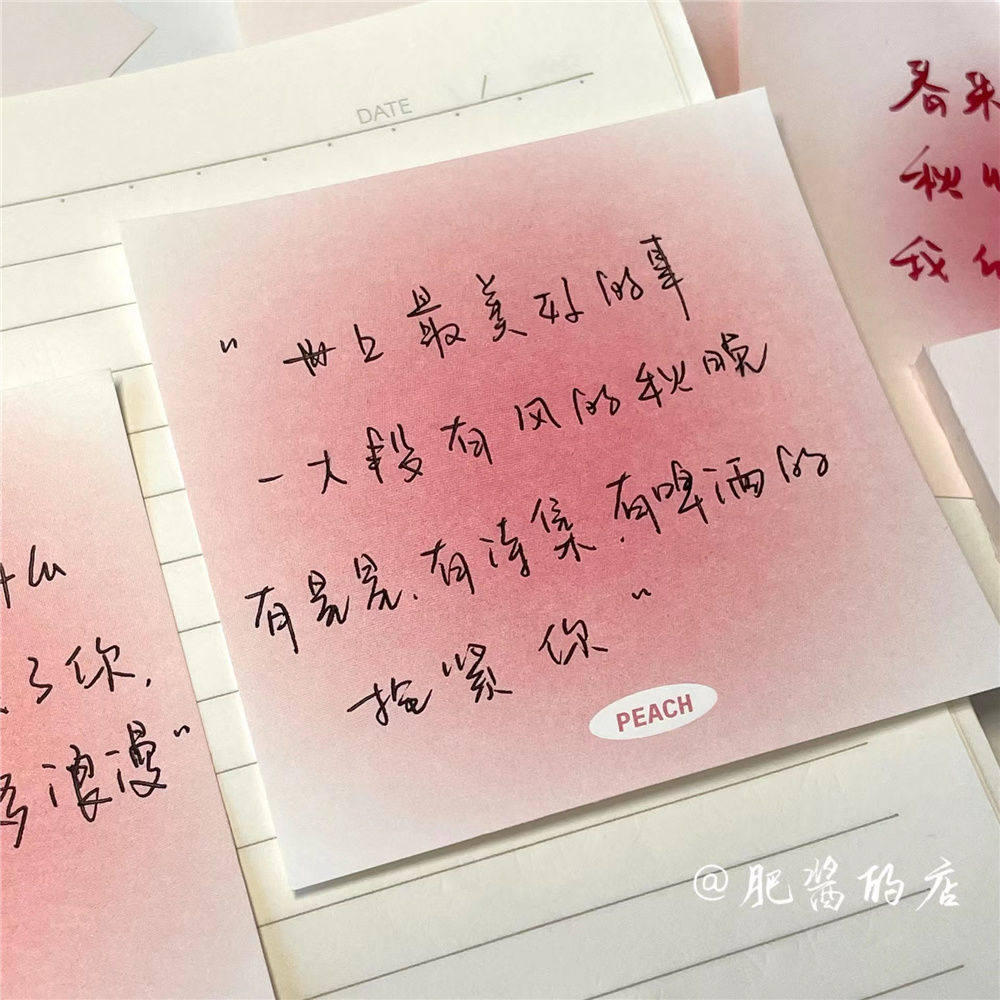 DATE /
春来
秋
我们
"世上最美好的事
一大段有风的秋晚
有星星、有诗集、有啤酒的
抱紧你"
PEACH
什么
了你,
浪漫"
@肥酱的店